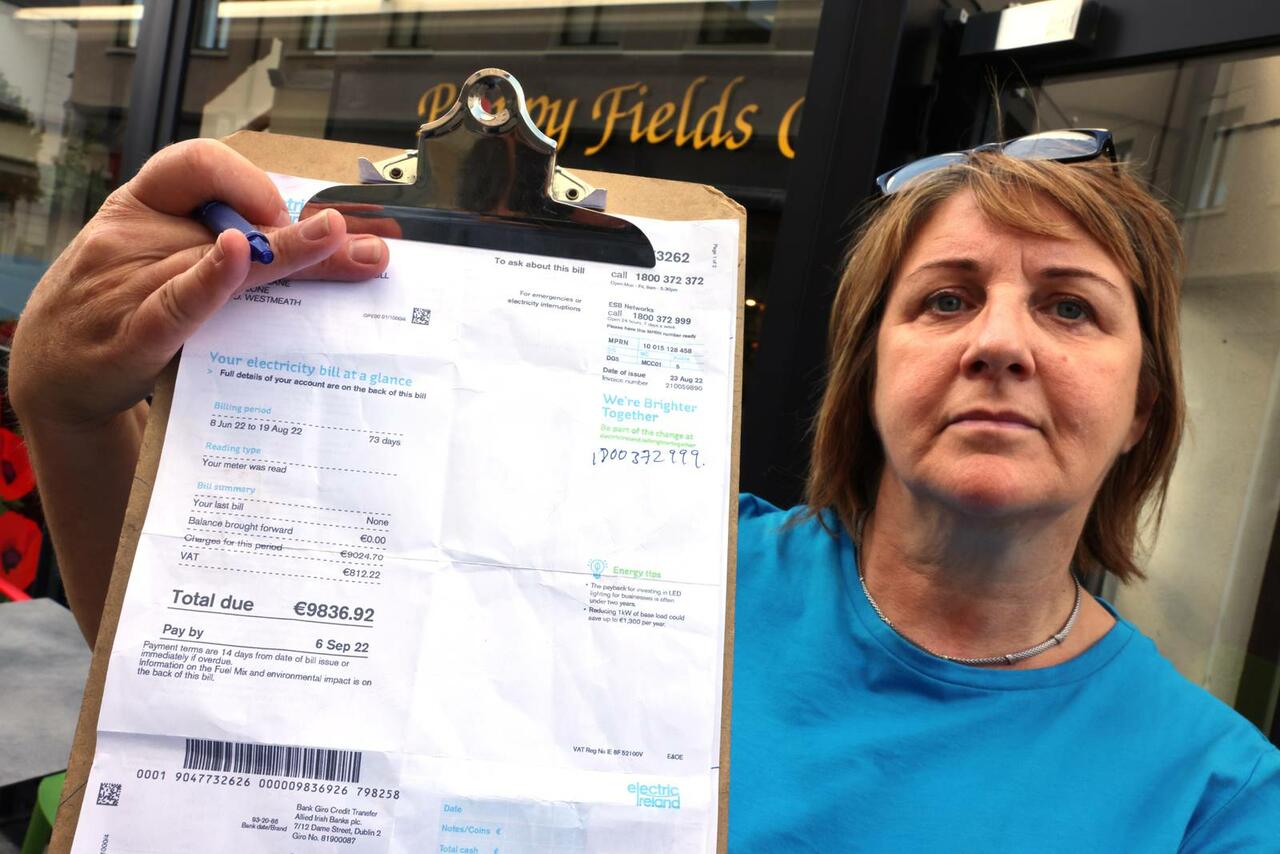 Poppy Fields C
3262
Page 1 of 2
To ask about this bill
call 1800 372 372
Open Mon - Fri, 8am - 5:30pm
For emergencies or
electricity interruptions
ESB Networks
call 1800 372 999
Open 24 hours, 7 days a week
Please have this MPRN number ready
MPRN 10 015 128 458
DG5 MCC01 5
Date of issue 23 Aug 22
Invoice number 210059890
WESTMEATH
Your electricity bill at a glance
> Full details of your account are on the back of this bill
Billing period
8 Jun 22 to 19 Aug 22 73 days
Reading type
Your meter was read
Bill summary
Your last bill None
Balance brought forward €0.00
Charges for this period €9024.70
VAT €812.22
Total due €9836.92
Pay by 6 Sep 22
Payment terms are 14 days from date of bill issue or
immediately if overdue.
Information on the Fuel Mix and environmental impact is on
the back of this bill.
We're Brighter
Together
Be part of the change at
electricireland.ie/brightertogether
1800372999.
Energy tips
• The payback for investing in LED
lighting for businesses is often
under two years.
• Reducing 1kW of base load could
save up to €1,300 per year.
VAT Reg No IE 8F52100V E&OE
0001 9047732626 000009836926 798258
electric
Ireland
93-20-86
Bank date/Brand
Bank Giro Credit Transfer
Allied Irish Banks plc.
7/12 Dame Street, Dublin 2
Giro No. 81900087
Date
Notes/Coins €
Total cash €